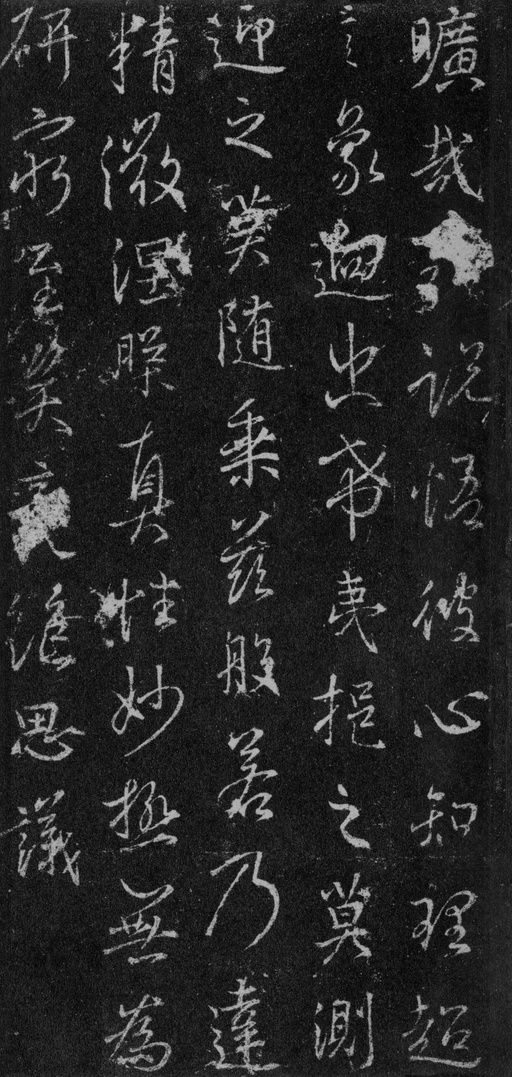 曠哉□說悟彼心知理超
言象迥出希夷挹之莫測
迎之莫隨乘茲般若乃達
精微湛照真性妙極無為
研窮至癸意絕思議